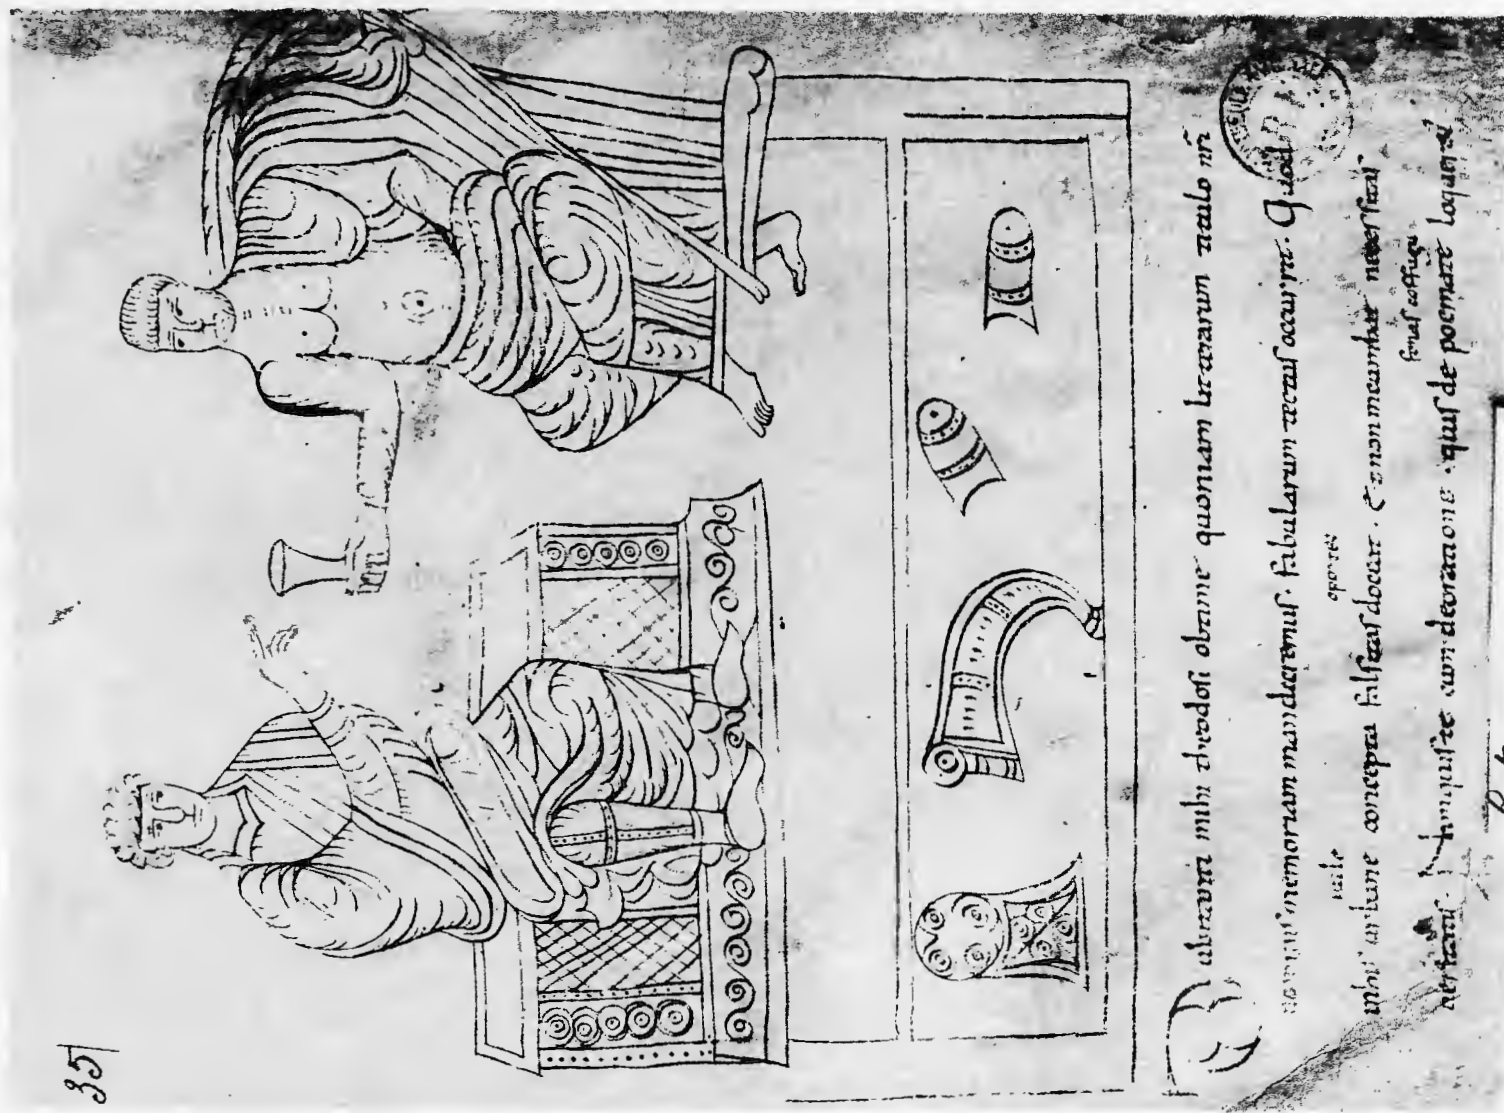 35
Dubitanti mihi theodosi obtime quoniam litterarum titulo nr̄i
nominis memoriam mandaremus. fabularum textus occurrit. Quod
in his urbane concepta falsitas doceat. & non incumbat necessitas
ueritatis. quis te cum de oratione. quis de poemate loqueret